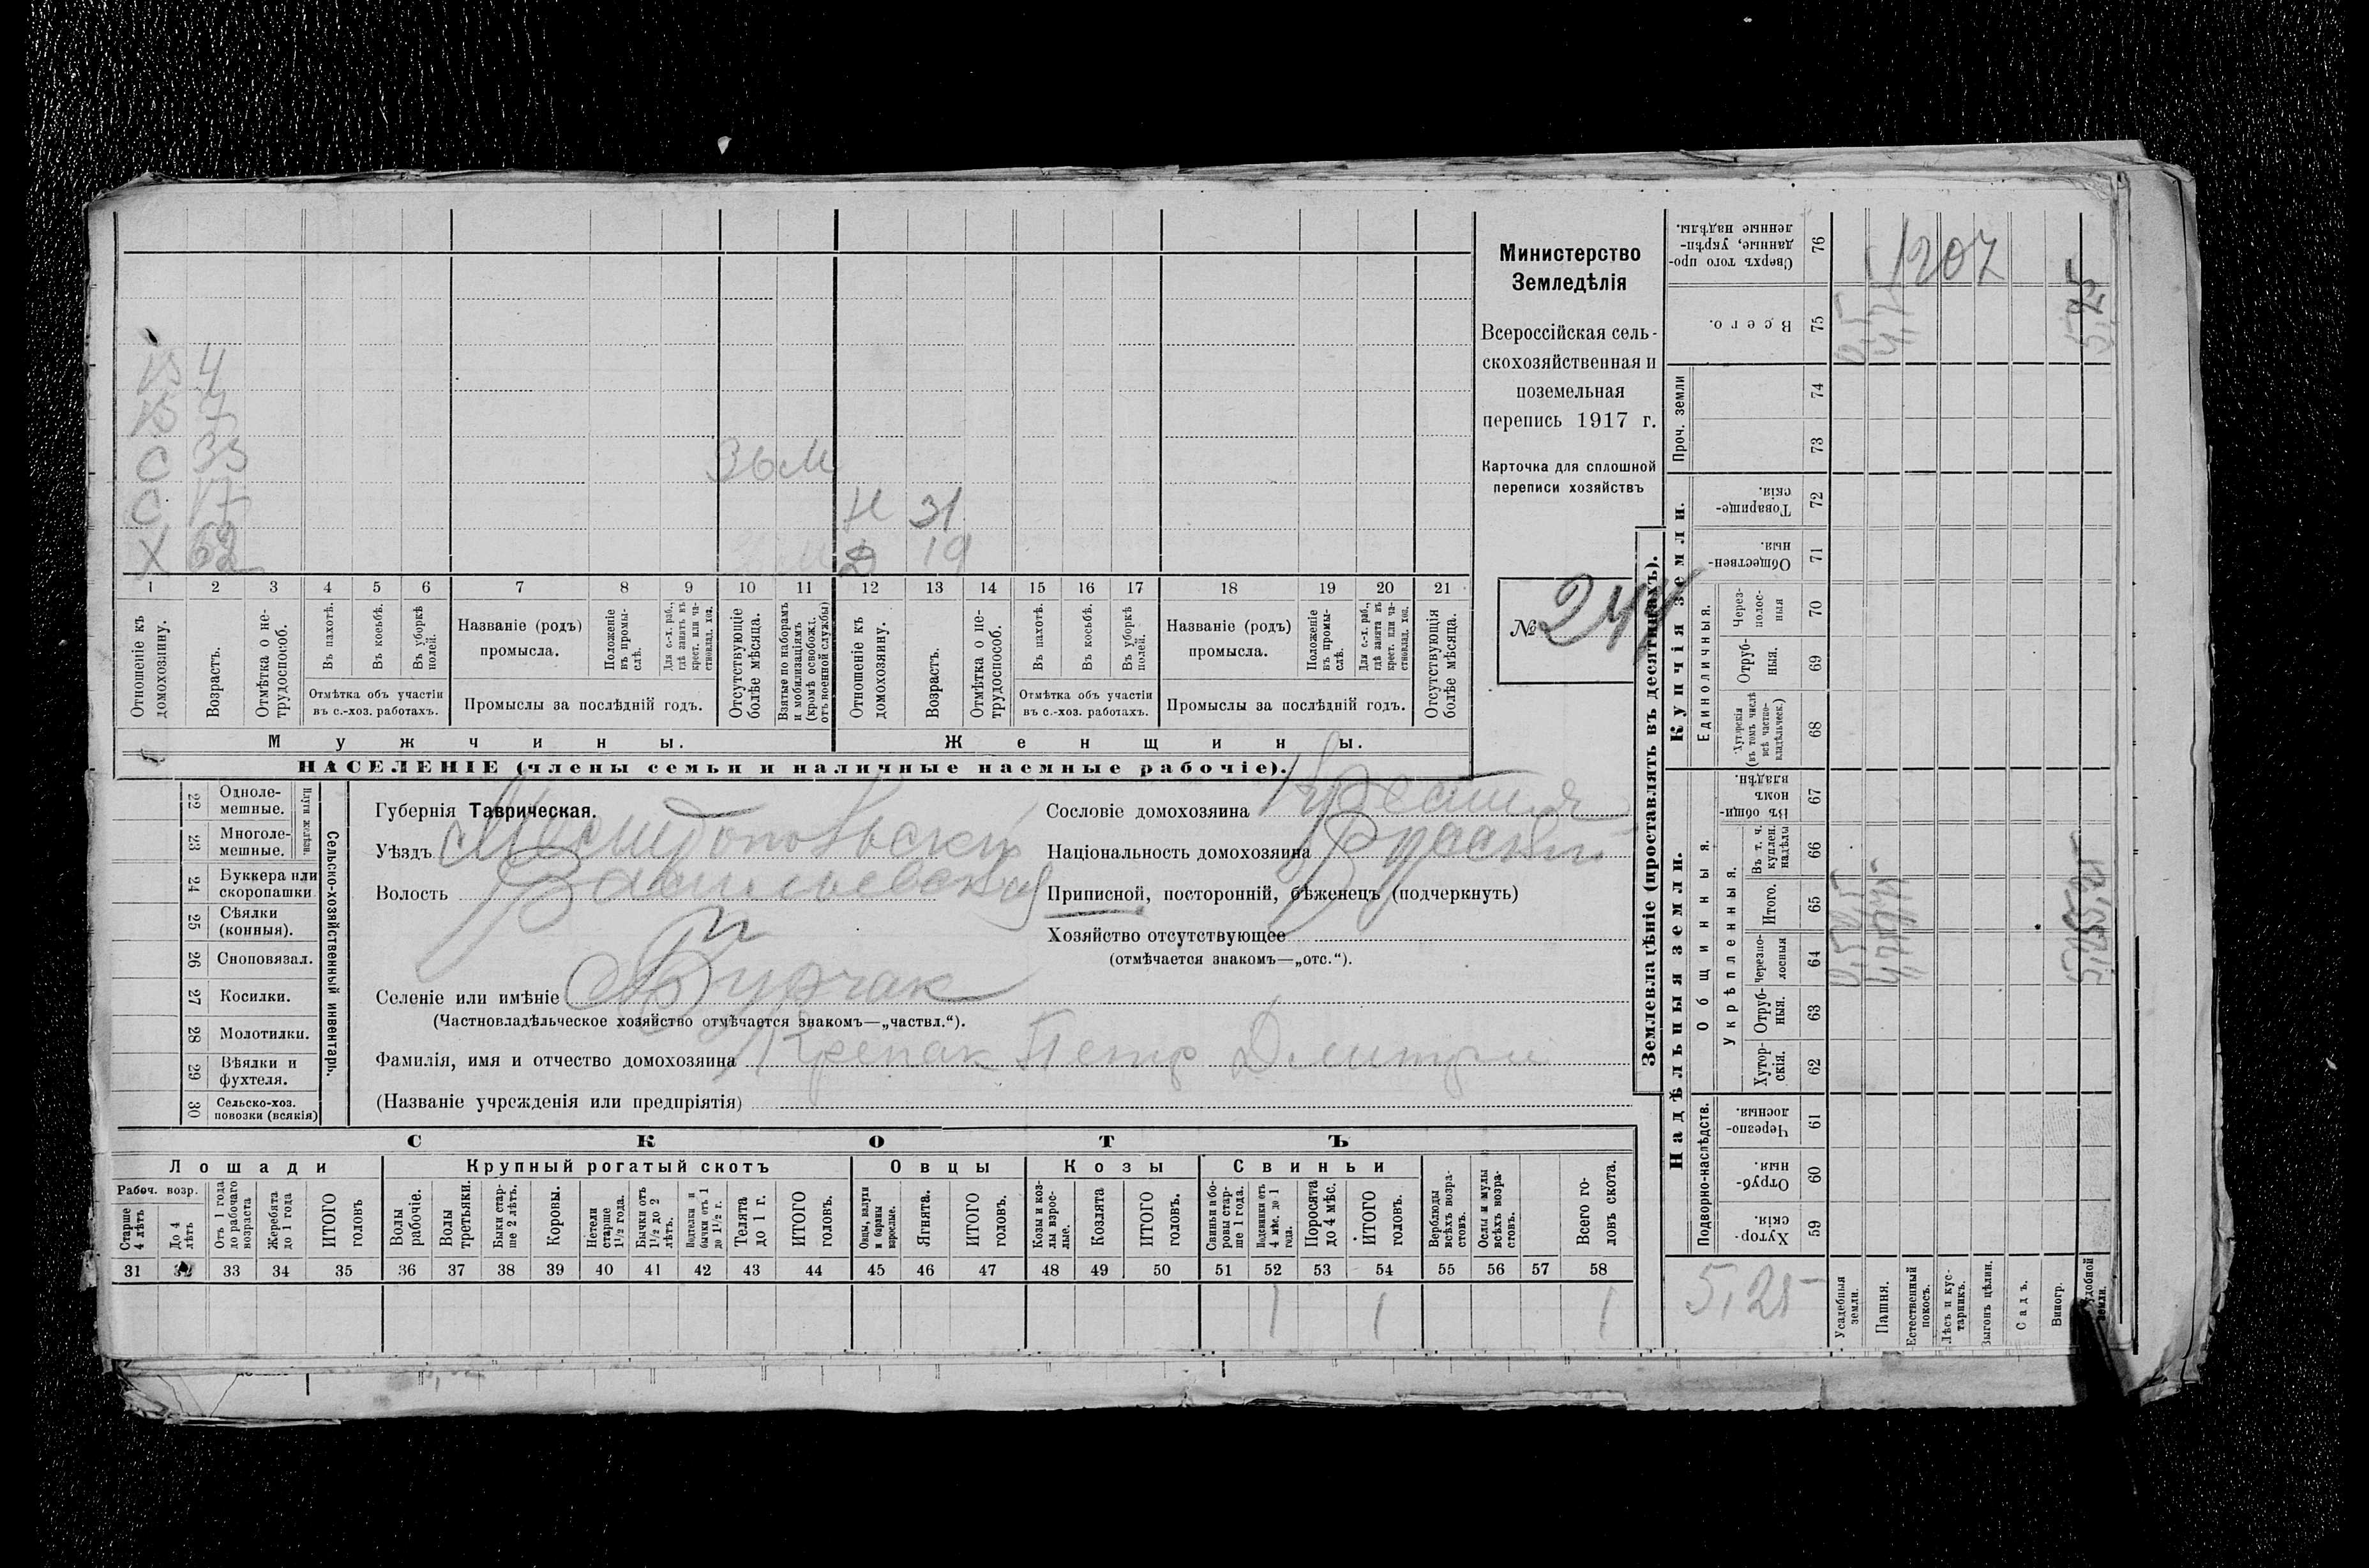 В 4
В 7
С 33 36 м
С 17 Н 31
Х 62 Д 19
1 2 3 4 5 6 7 8 9 10 11 12 13 14 15 16 17 18 19 20 21
Отношеніе къ домохозяину.
Возрастъ.
Отмѣтка о нетрудоспособ.
Въ пахотѣ.
Въ косьбѣ.
Въ уборкѣ полей.
Отмѣтка объ участіи
въ с.-хоз. работахъ.
Названіе (родъ)
промысла.
Положеніе въ промыслѣ.
Для с.-х. раб., гдѣ занятъ въ крест. или частновлад. хоз.
Промыслы за послѣдній годъ.
Отсутствующіе болѣе мѣсяца.
Взятые по наборамъ и мобилизаціямъ (кромѣ освобожд. отъ военной службы)
Отношеніе къ домохозяину.
Возрастъ.
Отмѣтка о нетрудоспособ.
Въ пахотѣ.
Въ косьбѣ.
Въ уборкѣ полей.
Отмѣтка объ участіи
въ с.-хоз. работахъ.
Названіе (родъ)
промысла.
Положеніе въ промыслѣ.
Для с.-х. раб., гдѣ занята въ крест. или частновлад. хоз.
Промыслы за послѣдній годъ.
Отсутствующія болѣе мѣсяца.
Мужчины.
Женщины.
НАСЕЛЕНІЕ (члены семьи и наличные наемные рабочіе).
Министерство
Земледѣлія
Всероссійская сель-
скохозяйственная и
поземельная
перепись 1917 г.
Карточка для сплошной
переписи хозяйствъ
№ 244
22 Одноле-
мешные.
23 Многоле-
мешные.
Плуги желѣзн.
24 Буккера или
скоропашки
25 Сѣялки
(конныя).
26 Сноповязал.
27 Косилки.
28 Молотилки.
29 Вѣялки и
фухтеля.
30 Сельско-хоз.
повозки (всякія)
Сельско-хозяйственный инвентарь.
Губернія Таврическая.
Уѣздъ Мелитопольскій
Волость Васильевская
Селеніе или имѣніе Бурчак
(Частновладѣльческое хозяйство отмѣчается знакомъ—„частвл.“).
Фамилія, имя и отчество домохозяина Крепак Петр Дмитри
(Названіе учрежденія или предпріятія)
Сословіе домохозяина
Національность домохозяина
Приписной, посторонній, бѣженецъ (подчеркнуть)
Хозяйство отсутствующее
(отмѣчается знакомъ—„отс.“).
СКОТЪ
Лошади
Крупный рогатый скотъ
Овцы
Козы
Свиньи
Рабоч. возр.
Старше 4 лѣтъ
До 4 лѣтъ
Отъ 1 года до рабочаго возраста
Жеребята до 1 года
ИТОГО головъ
Волы рабочіе.
Волы третьяки.
Быки старше 2 лѣтъ.
Коровы.
Нетели старше 1½ года.
Бычки отъ 1½ до 2 лѣтъ.
Подтелки и бычки отъ 1 до 1½ г.
Телята до 1 г.
ИТОГО головъ.
Овцы, валухи и бараны взрослые.
Ягнята.
ИТОГО головъ.
Козы и козлы взрослые.
Козлята
ИТОГО головъ.
Свиньи и боровы старше 1 года.
Подсвинки отъ 4 мѣс. до 1 года.
Поросята до 4 мѣс.
ИТОГО головъ.
Верблюды всѣхъ возрастовъ.
Ослы и мулы всѣхъ возрастовъ.
Всего головъ скота.
31 32 33 34 35 36 37 38 39 40 41 42 43 44 45 46 47 48 49 50 51 52 53 54 55 56 57 58
1 1 1
Землевладѣніе (проставлять въ десятинахъ).
Сверхъ того проданные, укрѣпленные надѣлы. 76
1207
Всего. 75
0,5 4,75 5,25
Проч. земли 74
73
Купчія земли.
Товарищескія. 72
Общественныя. 71
Единоличныя.
Черезполосныя 70
Отрубныя. 69
Хуторскія (въ томъ числѣ всѣ частновладѣльческ.) 68
Надѣльныя земли.
Общинныя.
Въ общинномъ владѣн. 67
Укрѣпленныя.
Въ т. ч. куплен. надѣлы 66
Итого. 65
Черезполосныя 64
Отрубныя. 63
Хуторскія. 62
Подворно-наслѣдств.
Черезполосныя. 61
Отрубныя. 60
Хуторскія. 59
5,25
Усадебныя земли.
Пашня.
Естественный покосъ.
Лѣсъ и кустарникъ.
Выгонъ цѣлин.
Садъ.
Виногр.
удобной земли.